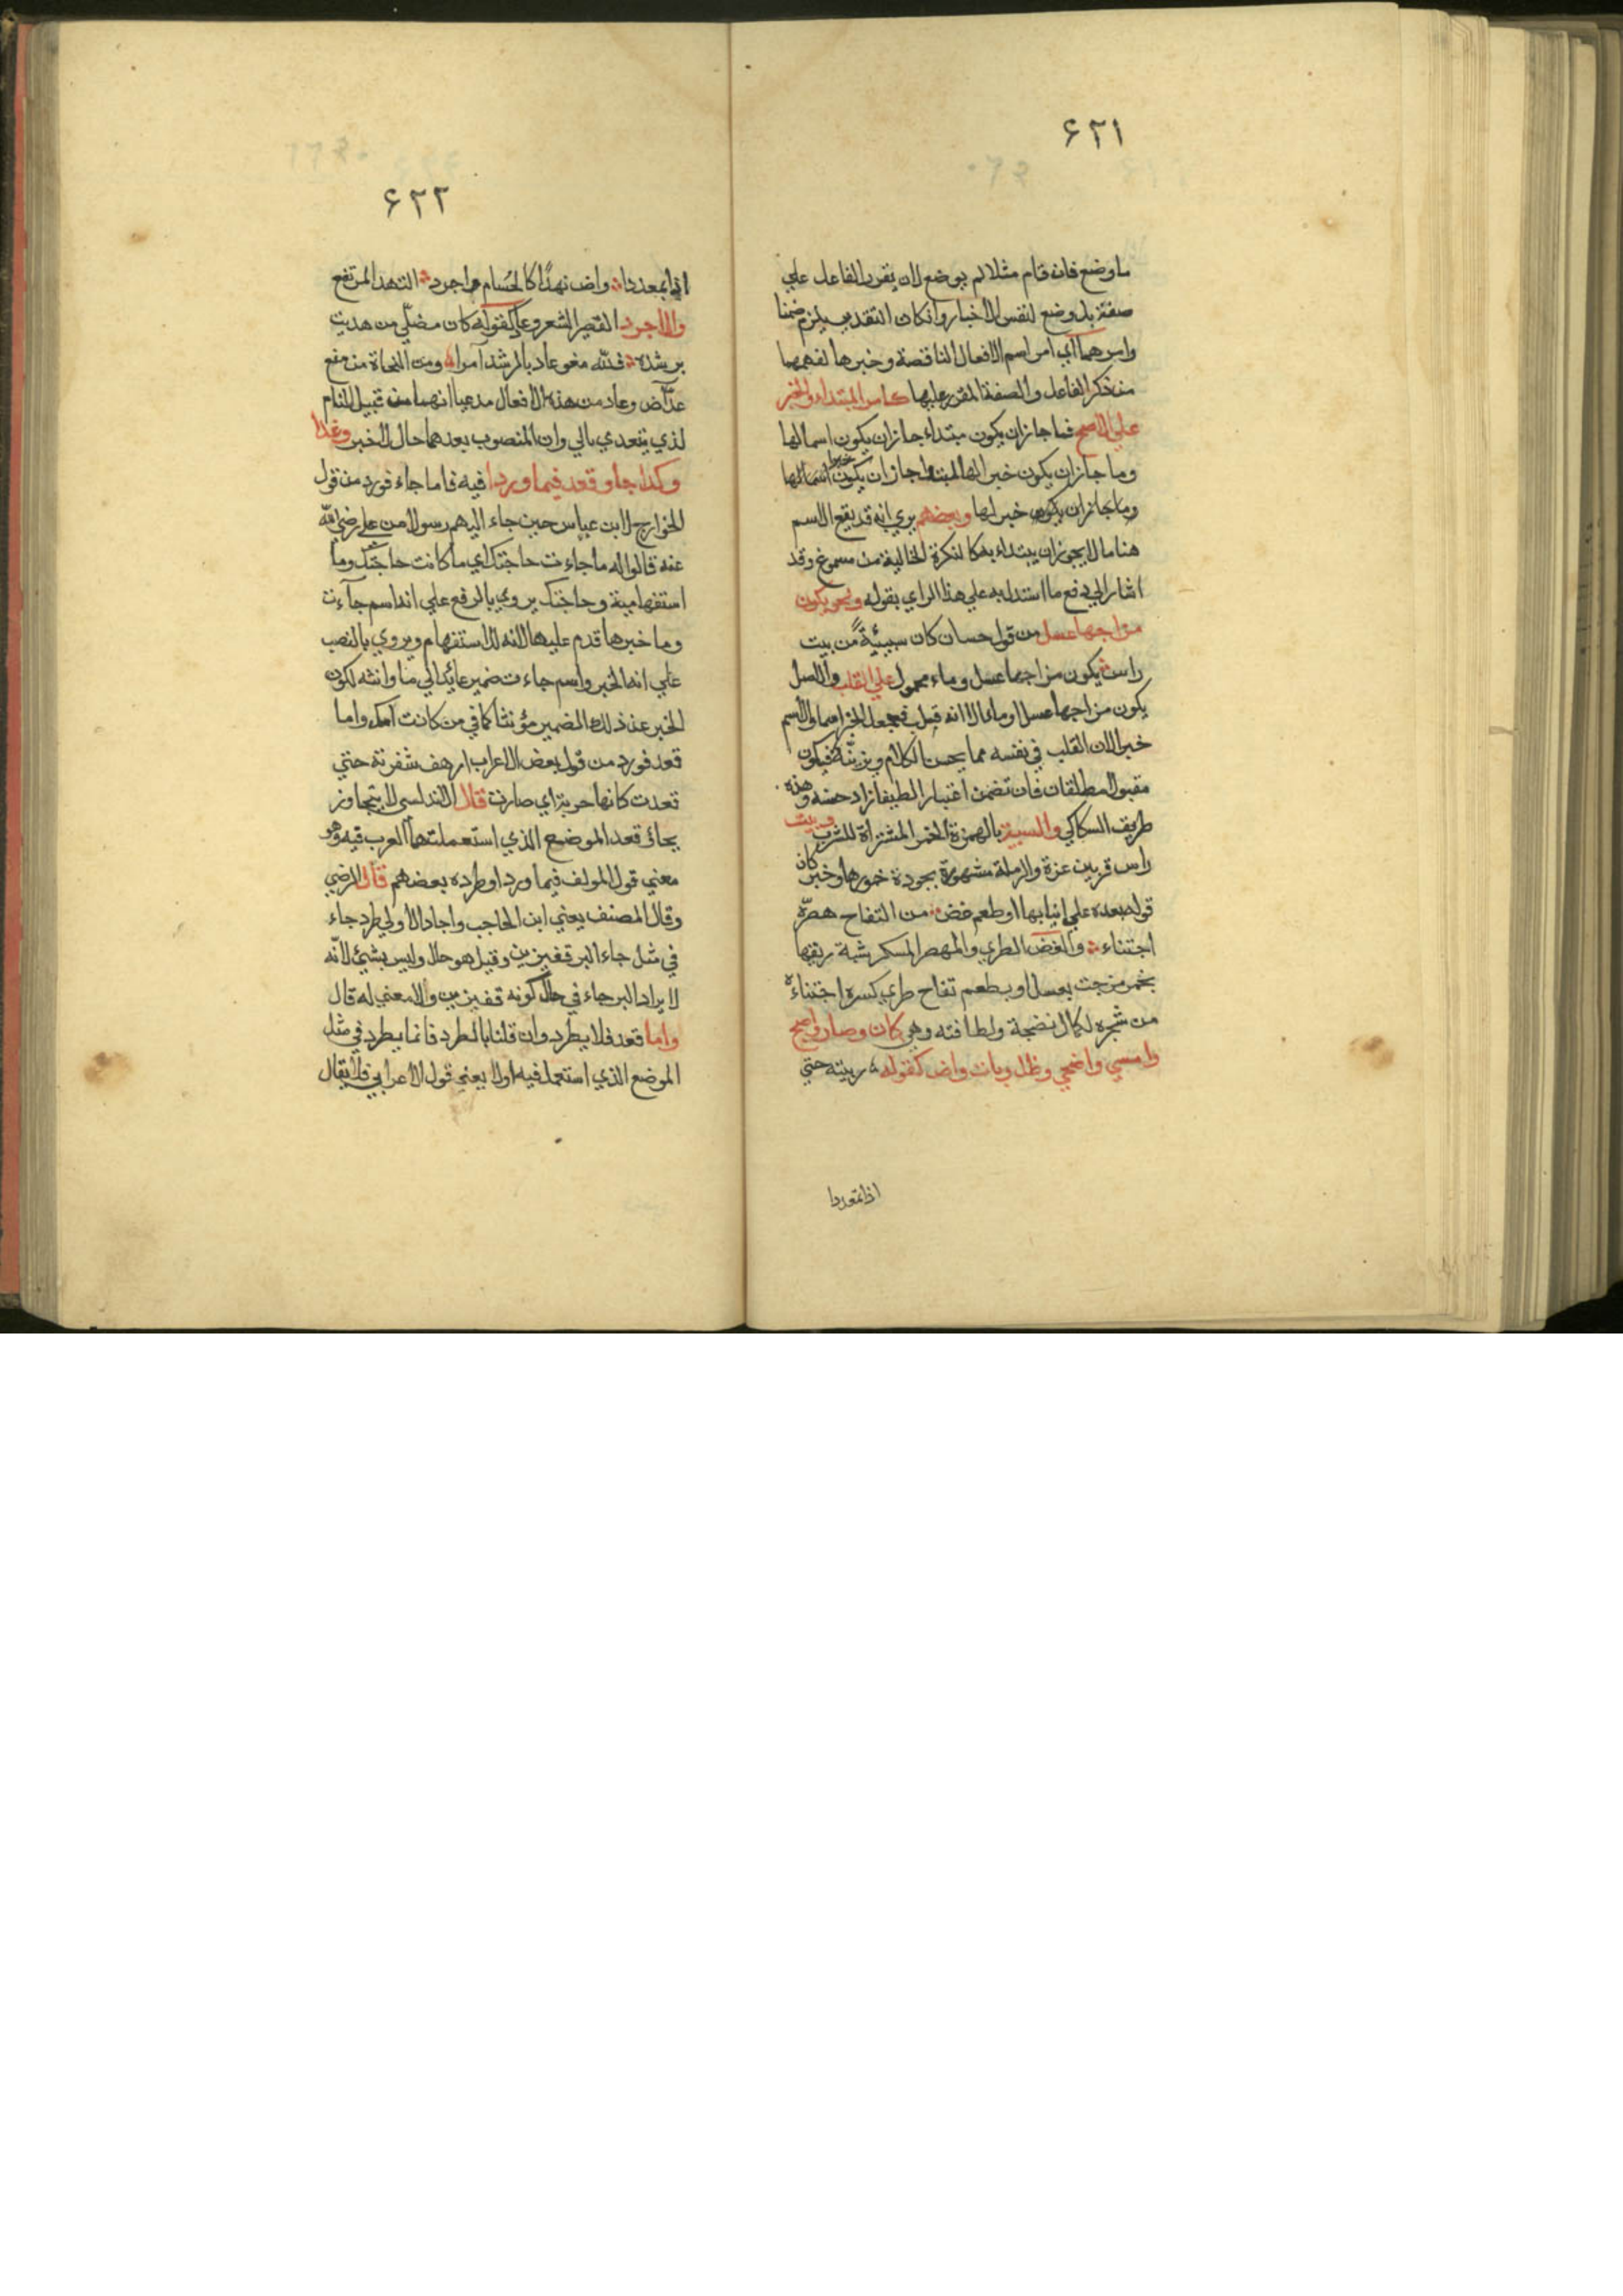 ٤٢١
ما وضع فان قام مثلا لم يوضع لان يقرر الفاعل علي
صفة بل وضع لنفس الاخبار وانكان التقدير يلزم ضمنا
وامرهما اي امر اسم الافعال الناقصة وخبرها لفهمهما
من ذكر الفاعل والصفة المقرر عليها كامر المبتداء والخبر
علي الاصح فما جاز ان يكون مبتداء جاز ان يكون اسمالها
وما جاز ان يكون خبر الها المبتدا جاز ان يكون خبرا اسمالها
وما جاز ان يكون خبر لها وبعضهم يري انه قد يقع الاسم
هنا ما لا يجوز ان يبتداء به كالنكرة الخالية من مسوغ وقد
اشار الي دفع ما استدل به علي هذا الراي بقوله ونحو يكون
مزاجها عسل من قول حسان كان سبيئة من بيت
راس يكون مزاجها عسل وماء محمول علي القلب والاصل
يكون مزاجها عسلا وماء الا انه قبل فجعل الخبر اسما والاسم
خبرا لان القلب في نفسه مما يحسن الكلام ويزينه فيكون
مقبولا مطلقا فان تضمن اعتبارا لطيفا زاد حسنه وهذه
طريق السكاكي والسبيئة بالهمزة الخمر المشتراة للشرب وبيت
راس قر بين غزة والرملة مشهورة بجودة خمورها وخبر كان
قوله بعده علي انيابها او طعم غض من التفاح هصره
اجتناء والغض الطري والهصر المسكر شبه ريقها
بخمر مزجت بعسل او بطعم تفاح طري كسره اجتناءه
من شجره لكمال نضجة ولطافته وهي كان وصار واصبح
وامسي واضحي وظل وبات واض كقوله ربيته حتي
اذا تمعددا
٤٢٢
اذا تمعددا واض نهدا كالحسام اجرد النهد المرتفع
والاجرد القصير الشعر وعاد كقوله كان مضلي من هديت
برشده فلله مغو عاد بالرشد آمرا ومن النحاة من منع
عد آض وعاد من هذه الافعال مدعيا انهما من قبيل التام
لذي يتعدي بالي وان المنصوب بعدهما حال لا خبر وغدا
وكذا جاء وقعد فيما وردا فيه فاما جاء فورد من قول
الخوارج لابن عباس حين جاء اليهم رسولا من علي رضي الله
عنه قالوا له ما جاءت حاجتك اي ما كانت حاجتك وما
استفهامية وحاجتك يروي بالرفع علي انه اسم جاءت
وما خبرها قدم عليها لانه للاستفهام ويروي بالنصب
علي انه الخبر واسم جاءت ضمير عائد الي ما وانثه لكون
الخبر عن ذلك الضمير مؤنثا كما في من كانت امك واما
قعد فورد من قول بعض الاعراب ارهف شفرته حتي
قعدت كانها حربة اي صارت قال الاندلسي لا يتجاوز
بجاء وقعد الموضع الذي استعملتهما العرب فيه وهو
معني قول المولف فيما ورد او طرده بعضهم قال الرضي
وقال المصنف يعني ابن الحاجب واجاد الاولي طرد جاء
في مثل جاء البر قفيزين وقيل هو حال وليس بشئ لانه
لا يراد البر جاء في حال كونه قفيزين ولا معني له قال
واما قعد فلا يطرد وان قلنا بالطرد فانما يطرد في مثل
الموضع الذي استعمل فيه اولا يعني قول الاعرابي فلا يقال